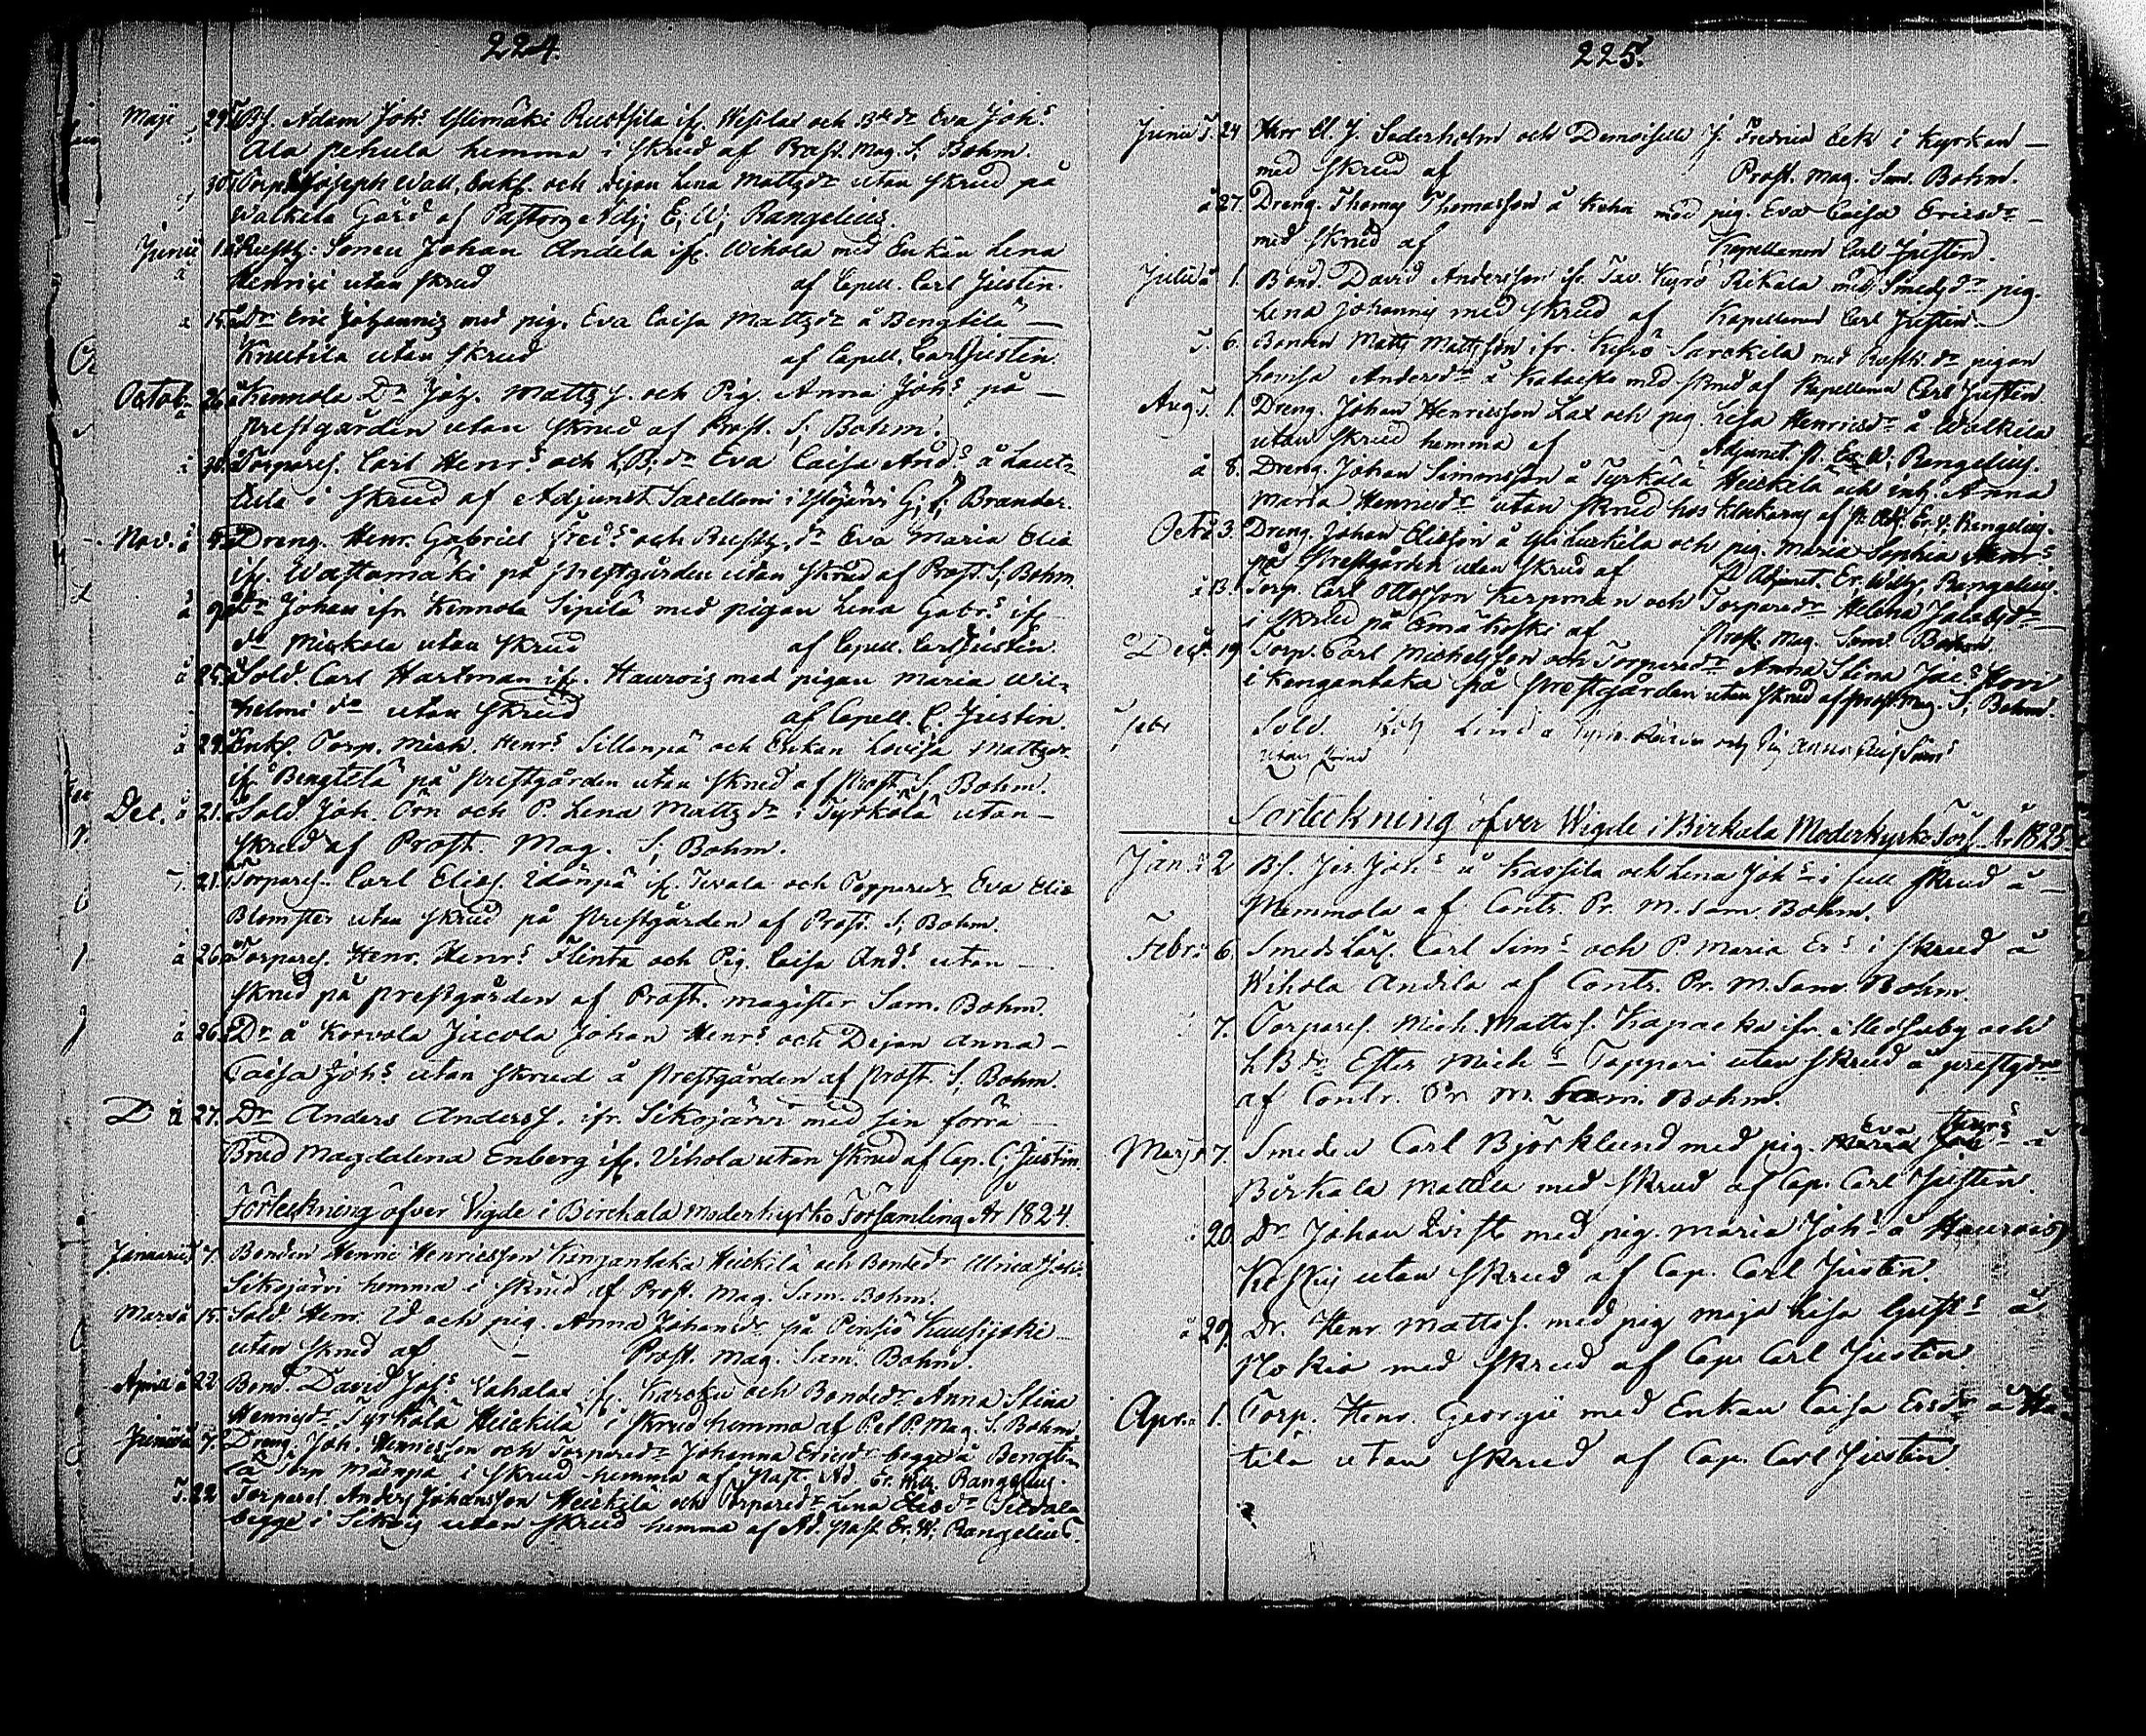 224.
Maji 29 Bs. Adam Joh.s Ylimäki Ruotsila if. Wesilax och Bdr Eva Joh.s
Ala pehula hemma i skrud af Prost. Mag. S. Bohm.
30 Joseph Wall, Enkl. och Pijan Lena Mattzdr utan skrud på
Walkila Gård af Pastors Adj. E. W. Rangelius.
Junii Sonen Johan Andela if. Wihola med Enkan Lena
Henrici utan skrud af Capell. Carl Justin.
å 15 Dr Eric Johannis med pig. Eva Caisa Mattzdr å Bengtilä
Knutila utan skrud af Capell. Carl Justin.
Octob. å 26 Kennola Dr Joh. Mattz s. och Pig. Anna Joh.s på
prestgården utan skrud af Prost. S. Bohm.
å 30 Torpares. Carl Henr.s och LB.dr Eva Caisa And.s å Laut-
tula i skrud af Adjunct. Sacellani i Ylöjärvi G. Brander.
Nov. å Dreng. Henr. Gabriel Fred.s och Rustz.dr Eva Maria Elia
if. Wattamäki på prestgården utan skrud af Prost. S. Bohm.
å 9 Dr Johan ifr Kennola Sipilä med pigan Lena Gabr.s if
do Mickola utan skrud af Capell. Carl Justin
å 25 Sold. Carl Hartman if. Haurois med pigan Maria Wil-
helmi dr utan skrud af Capell. C. Justin.
å 29 Enkl. Torp. Mich. Henr.s Sillanpä och Enkan Lovisa Mattzdr
if Bengtilä på prestgården utan skrud af Prost. S. Bohm.
Dec. å 21. Sold Joh. Örn och P. Lena Mattzdr i Tyrkölä utan
skrud af Prost. Mag. S. Bohm.
21. Torpares. Carl Elias. Idänpä if. Tevala och Torparedr Eva Elia
Blomster utan skrud på prestgården af Prost. S. Bohm.
å 26 Torpares. Henr. Henr.s Flinta och Pig. Caisa And.s utan
skrud på prestgården af Prost. magister Sam. Bohm.
å 26 Dr å Korvola Juccola Johan Henr.s och Dejan Anna
Caisa Joh.s utan skrud å prestgården af Prost. S. Bohm.
D å 27. Dr Anders Anderss. ifr. Siksjärvi med sin förra
Brud Magdalena Enberg if. Vihola utan skrud af Cap. C. Justin.
Förteckning öfver Vigde i Birckala Moderkyrko Församling År 1824.
Januarii 7. Bonden Henric Henricsson Kangantaka Heickilä och Bondedr Ulrica Joh.s
Siksjärvi hemma i skrud af Prost. Mag. Sam. Bohm.
Mars å 15. Sold. Henr. Id och pig. Anna Johansdr på Pinsiö Kuusijoki
utan skrud af Prost. Mag. Sam. Bohm.
April å 22 Bond. David Joh.s Vahalax if. Karcku och Bondedr Anna Stina
Henricsdr Tyrkölä Heickilä i skrud hemma af P. Mag. S. Bohm.
Junii å 7. Dreng. Joh. Henricsson och Torparedr Johanna Ericsdr begge å Bengti-
lä Torp Mäenpä i skrud hemma af Past. Ad. Er. Wilh. Rangelius.
22 Torpares. Anders Johansson Heickilä och Torparedr Lena Eliædr Sidvala
begge i Sikoij utan skrud hemma af Ad. past. Er. W. Rangelius.
225.
Junii 24 Herr Cl. J. Sederholm och Demoiselle J. Fredrica Eek i Kyrkan
med skrud af Prost. Mag. Sam. Bohm.
å 27. Dreng. Thomas Thomasson å Kohu med pig. Eva Caisa Ericsdr
med skrud af Kapellanen Carl Justen.
Julii å 1. Bond. David Andersson if. Tav. Kyrö Rikala med Smedsdr pig.
Lena Johannis med skrud af Kapellanen Carl Justen
6. Bonden Matts Mattsson ifr. Kyrö Sarckila med Rusth.dr pigan
Lovisa Andersdr å Kateisto med skrud af Kapellanen Carl Justen
Aug. 1. Dreng. Johan Henricsson Lax och pig. Lisa Henricsdr å Walkila
utan skrud hemma af Adjunct. P. Er. W. Rangelius.
å 8. Dreng. Johan Simonsson å Tyrkölä Heickilä och inh. Anna
Maria Henricsdr utan skrud hos klockarns af P. Adj. Er. W. Rangelius.
Oct å 3. Dreng. Johan Eliæson å Yliluckila och pig. Maria Sophia Henr.s
på Prestgården utan skrud af P. Adjunct. Er. Wilh. Rangelius.
å 13. Torp. Carl Ottosson Kerpman och Torparedr Helena Jacobsdr
i skrud på Emäkoski af Prost. Mag. Sam. Bohm.
Dec. 19. Torp. Carl Michelsson och Torparedr Anna Stina Jac.s Horri
i Kangantaka på prestgården utan skrud af Prost. Mag. S. Bohm.
Sold. Lind och Pig Anna
utan skrud
Förteckning öfver Wigde i Birkala Moderkyrko Förs. År 1825
Jan. å 2 Bs. Joh.s å Kassila och Lena Joh.s i full skrud å
Mammola af Contr. Pr. M. Sam. Bohm.
Febr. 6. Smedslärl. Carl Sim.s och P. Maria Er.s i skrud å
Wihola Andila af Contr. Pr. M. Sam. Bohm.
7. Torpares. Mich. Matts s. Kapacka ifr. Messuby och
L.B.dr Ester Mich.s Toppari utan skrud å prestgdn
af Contr. Pr. M. Sam. Bohm.
Mars 7. Smeden Carl Björklund med pig. Eva Henr.s å
Birkala Mattila med skrud af Cap. Carl Justen.
20. Dr Johan Qvist med pig. Maria Joh.s å Haurois
Keskij utan skrud af Cap. Carl Justen.
å 29. Dr. Henr. Mattss. med pig Maja Lisa Gust.s å
Nokia med skrud af Cap. Carl Justen.
Apr. 1. Torp. Henr. Georgii med Enkan Caisa Ersdr å Ha-
tila utan skrud af Cap. Carl Justen.